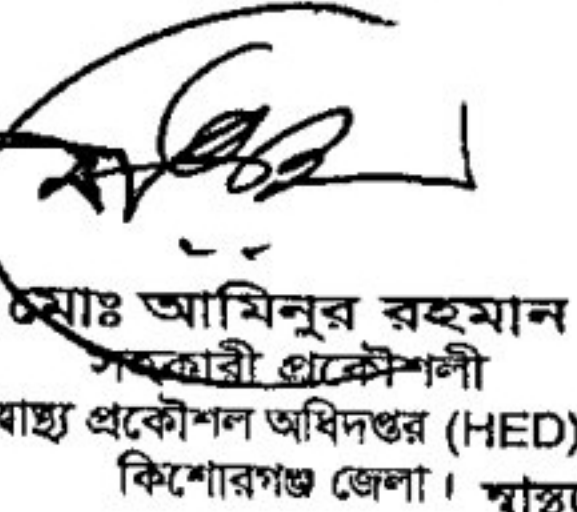 মোঃ আমিনুর রহমান
সহকারী প্রকৌশলী
স্বাস্থ্য প্রকৌশল অধিদপ্তর (HED)
কিশোরগঞ্জ জেলা।